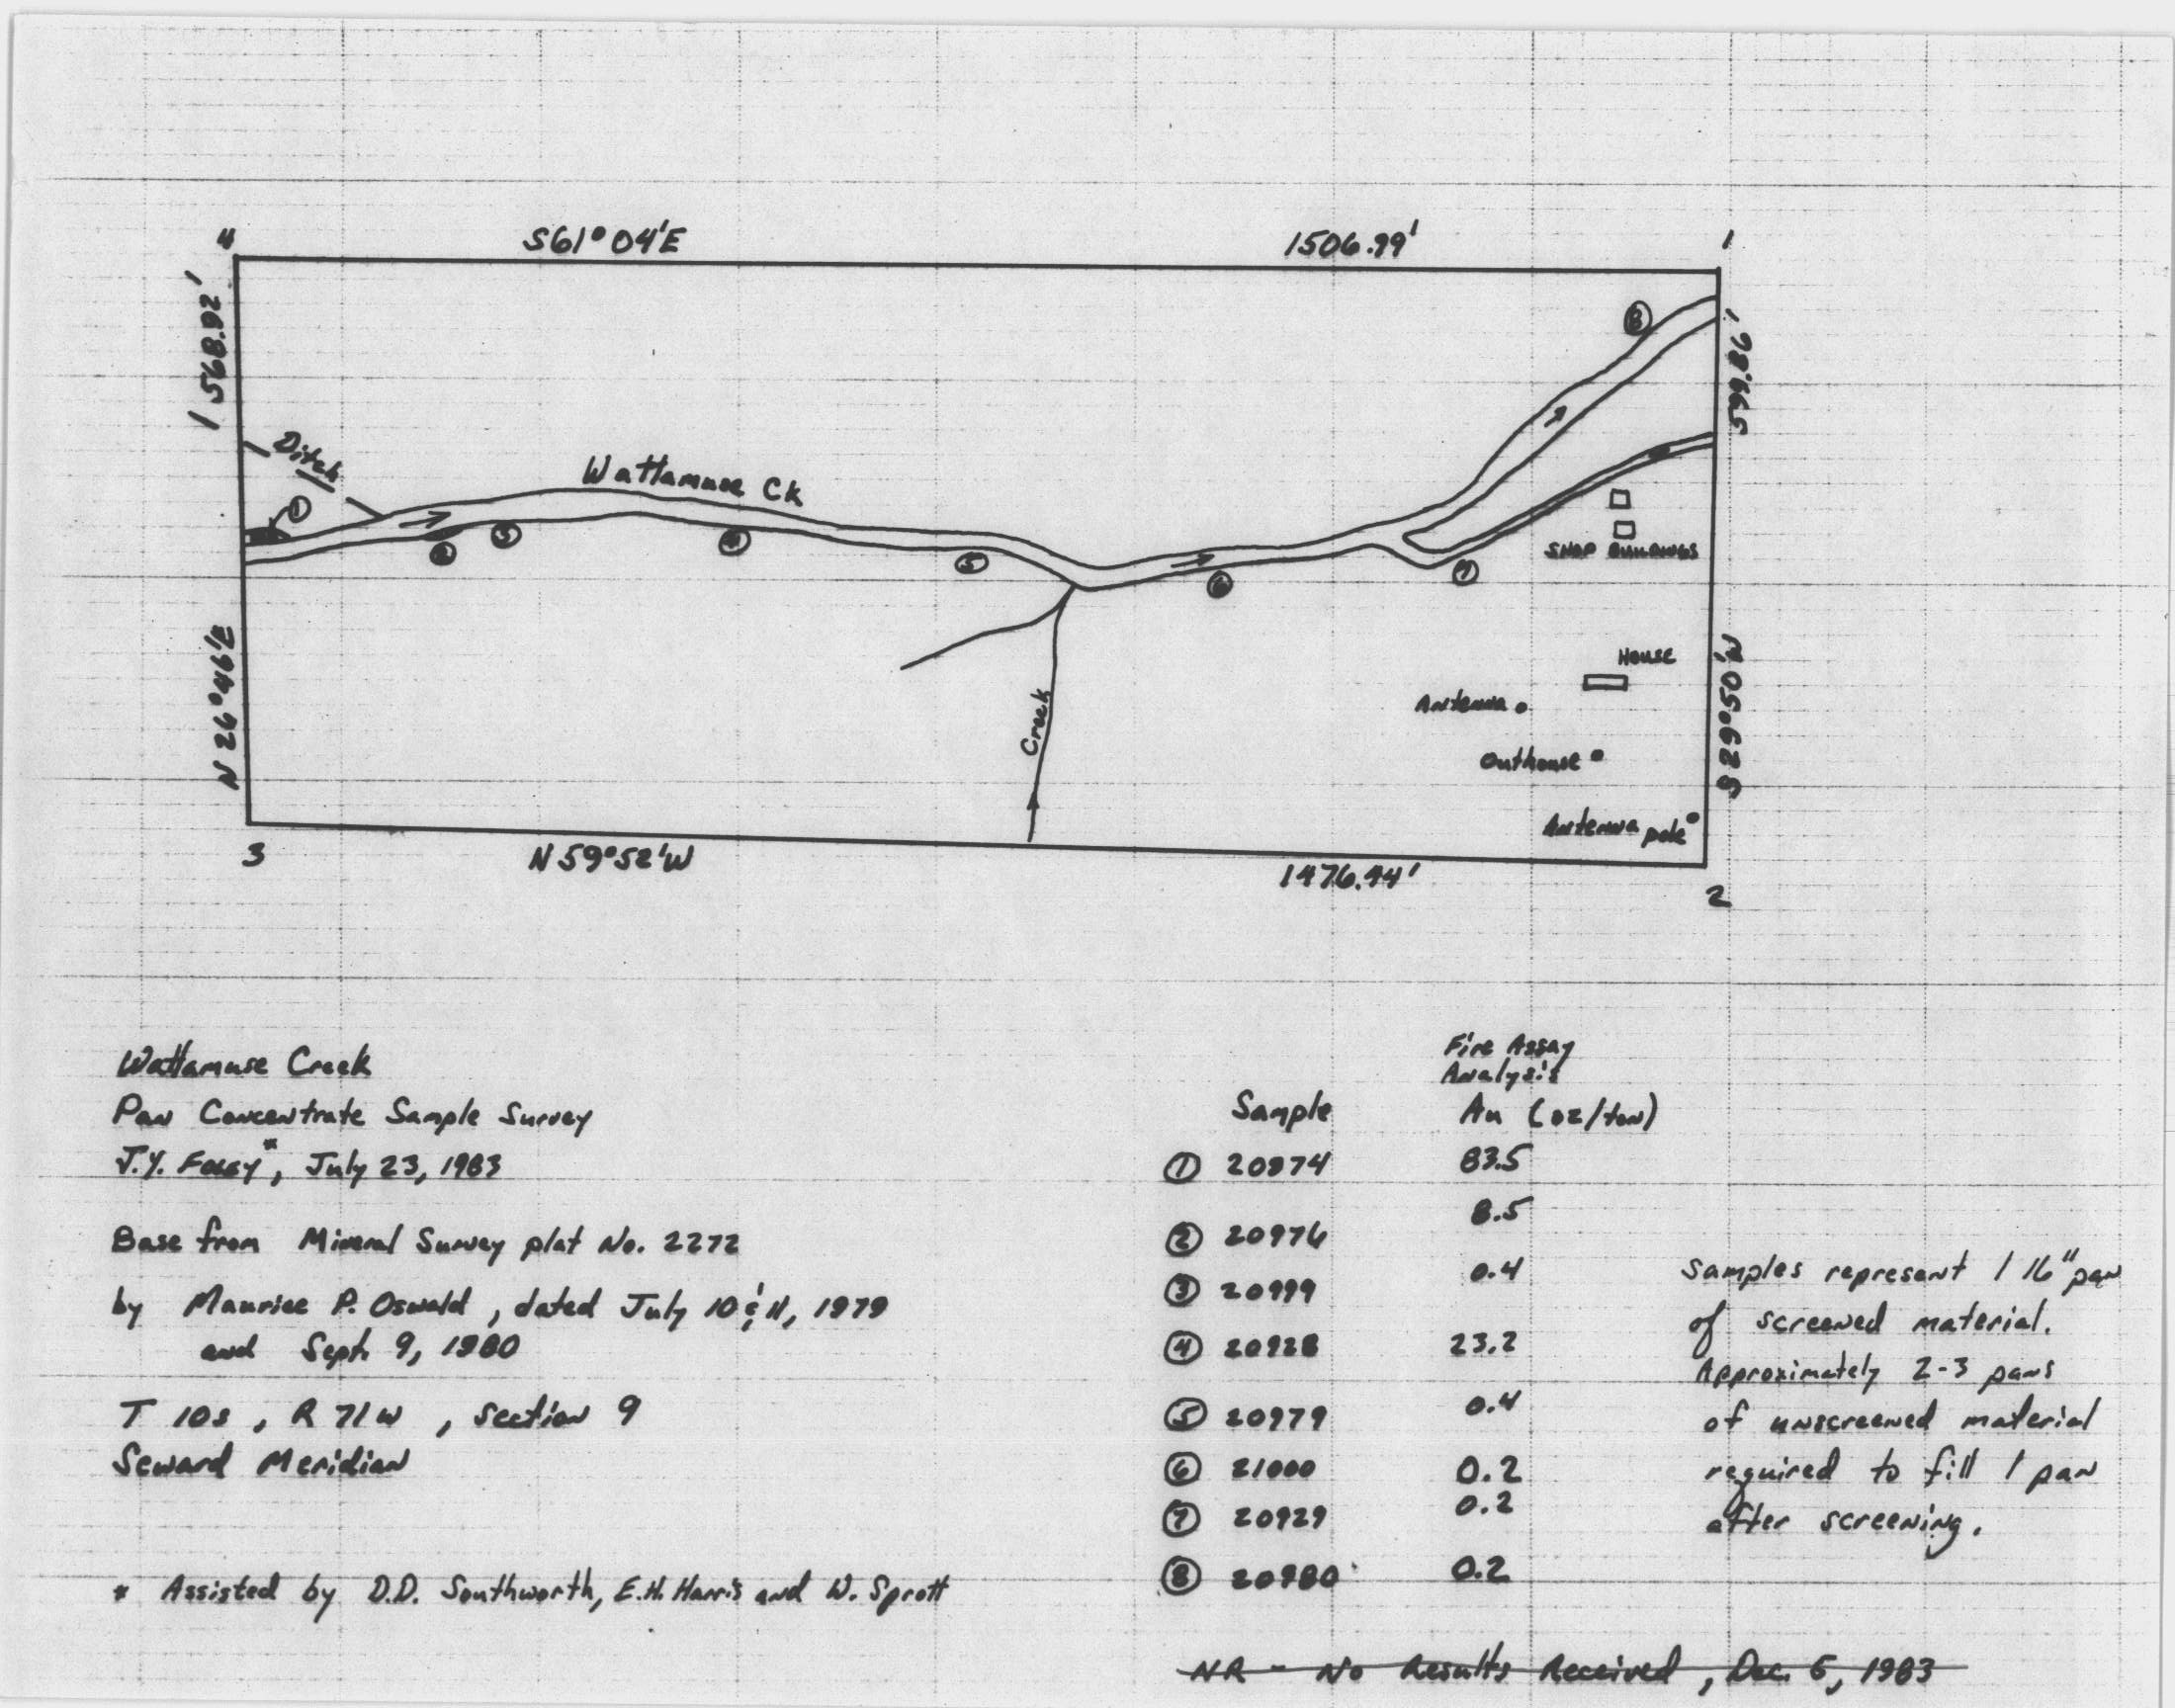 4
S61° 04'E
1506.99'
1
568.92'
N 26°46'E
599.86'
S 29°50'W
Ditch
Wattamuse Ck
1
2
3
4
5
6
7
8
SHOP BUILDINGS
House
Antenna
Outhouse
Antenna pole
Creek
3
N 59°52'W
1476.44'
2
Wattamuse Creek
Pan Concentrate Sample Survey
J.Y. Foley*, July 23, 1983
Base from Mineral Survey plat No. 2272
by Maurice P. Oswald, dated July 10 & 11, 1979
and Sept. 9, 1980
T 10s, R 71w, section 9
Seward Meridian
* Assisted by D.D. Southworth, E.H. Harris and W. Sprott
Fire Assay
Analysis
Sample Au (oz/ton)
① 20974 83.5
② 20976 8.5
③ 20999 0.4
④ 20928 23.2
⑤ 20979 0.4
⑥ 21000 0.2
⑦ 20929 0.2
⑧ 20980 0.2
Samples represent 1 16" pan
of screened material.
Approximately 2-3 pans
of unscreened material
required to fill 1 pan
after screening.
NR - No Results Received, Dec. 5, 1983